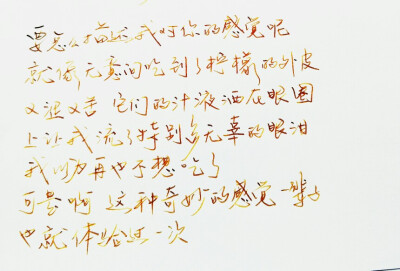 要怎么描述我对你的感觉呢
就像无意间吃到了柠檬的外皮
又涩又苦 它们的汁液洒在眼圈
上让我流了特别多无辜的眼泪
我以为再也不想吃了
可是啊 这种奇妙的感觉一辈子
也就体验过一次